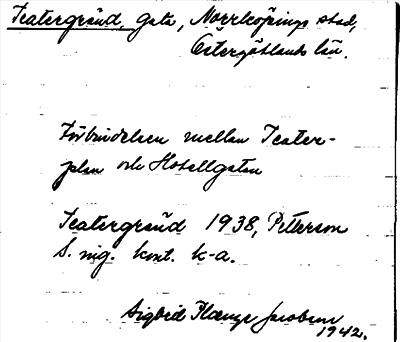 Teatergränd, gata, Norrköpings stad,
Östergötlands län.
Förbindelsen mellan Teater-
plan och Hotellgatan
Teatergränd 1938, Pettersson
S. ing. kont. k-a.
Sigbrid Plænge Jacobson
1942.